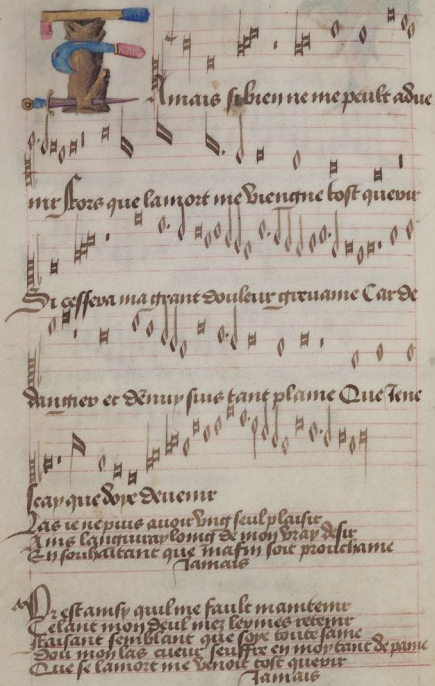 Amais si bien ne me peult adve
nir Fors que la mort me viengne tost querir
Si cessera ma grant douleur grevaine Car de
dangier et dennuy suis tant plaine Que Jene
scay que doye devenir
Las ie ne puis avoir ung seul plaisir
Ains languiray loing de mon vray desir
En souhaitant que ma fin soit prouchaine
Jamais
Or est ainsy quil me fault maintenir
Celant mon deul mez lermes retenir
Faisant semblant que soye toute saine
Dou mon las cueur seuffre en moy tant de paine
Que se la mort me venoit tost querir
Jamais